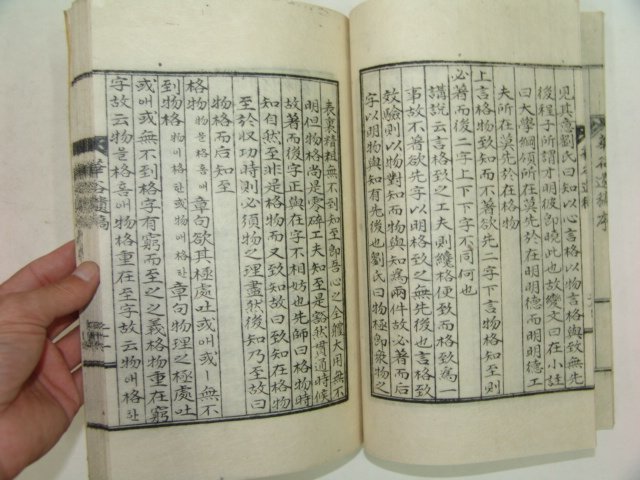 見其意劉氏曰知以心言格以物言格與致無先
後程子所謂才明彼卽曉此也故纔文曰在小註
曰大學綱領所在莫先於在明明德而明明德工
夫所在莫先於在格物
上言格物致知則下欲先二字下言物格知至則
必著而后二字上下下字不同何也
講說云言格致之工夫則纔格便致而格致爲一
事故不著欲先字以明格致之無先後也言格致
效驗則以物對知而物與知爲兩件故必著而后
字以明物與知有先後也劉氏曰物極卽衆物之
表裏精粗無不到知至卽吾心之全體大用無不
明但物格尚是零碎工夫知至是豁然貫通時候
故著而後字正與在字不相妨也先師曰格物時
知自然至非是格物而又致知故曰致知在格物
至於收功時則必須物之理盡然後知乃至故曰
物格而后知至
格物物을格용章句欲其極處吐或애或ㅣ無不
到物格物애格하物에格한章句物理之極處吐
或애或ㅣ無不到格字有窮而至之之義格物重在窮
字故云物을格物格重在至字故云物애格한
華谷遺稿
華谷遺稿
華谷遺稿序